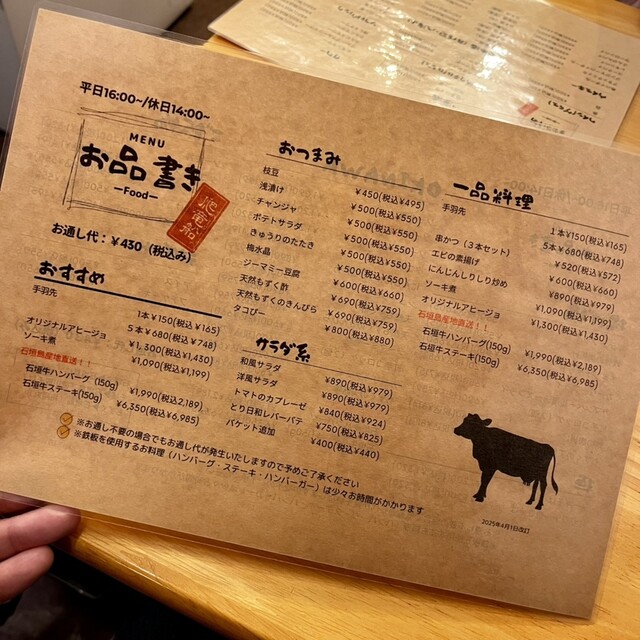 平日16:00~/休日14:00~
MENU
お品書き
—Food—
池電船
お通し代：¥430（税込み）
おすすめ
手羽先
1本¥150(税込¥165)
5本¥680(税込¥748)
オリジナルアヒージョ ¥1,300(税込¥1,430)
ソーキ煮 ¥1,090(税込¥1,199)
石垣島産地直送！！
石垣牛ハンバーグ(150g) ¥1,990(税込2,189)
石垣牛ステーキ(150g) ¥6,350(税込¥6,985)
おつまみ
枝豆 ¥450(税込¥495)
浅漬け ¥500(税込¥550)
チャンジャ ¥500(税込¥550)
ポテトサラダ ¥500(税込¥550)
きゅうりのたたき ¥500(税込¥550)
梅水晶 ¥500(税込¥550)
ジーマミー豆腐 ¥600(税込¥660)
天然もずく酢 ¥690(税込¥759)
天然もずくのきんぴら ¥690(税込¥759)
タコぴー ¥800(税込¥880)
サラダ系
和風サラダ ¥890(税込¥979)
洋風サラダ ¥890(税込¥979)
トマトのカプレーゼ ¥840(税込¥924)
とり日和レバーパテ ¥750(税込¥825)
バケット追加 ¥400(税込¥440)
一品料理
手羽先
1本¥150(税込¥165)
5本¥680(税込¥748)
串かつ（3本セット） ¥520(税込¥572)
エビの素揚げ ¥600(税込¥660)
にんじんしりしり炒め ¥890(税込¥979)
ソーキ煮 ¥1,090(税込¥1,199)
オリジナルアヒージョ ¥1,300(税込¥1,430)
石垣島産地直送！！
石垣牛ハンバーグ(150g) ¥1,990(税込2,189)
石垣牛ステーキ(150g) ¥6,350(税込¥6,985)
※お通し不要の場合でもお通し代が発生いたしますので予めご了承ください
※鉄板を使用するお料理（ハンバーグ・ステーキ・ハンバーガー）は少々お時間がかかります
2025年4月1日改訂